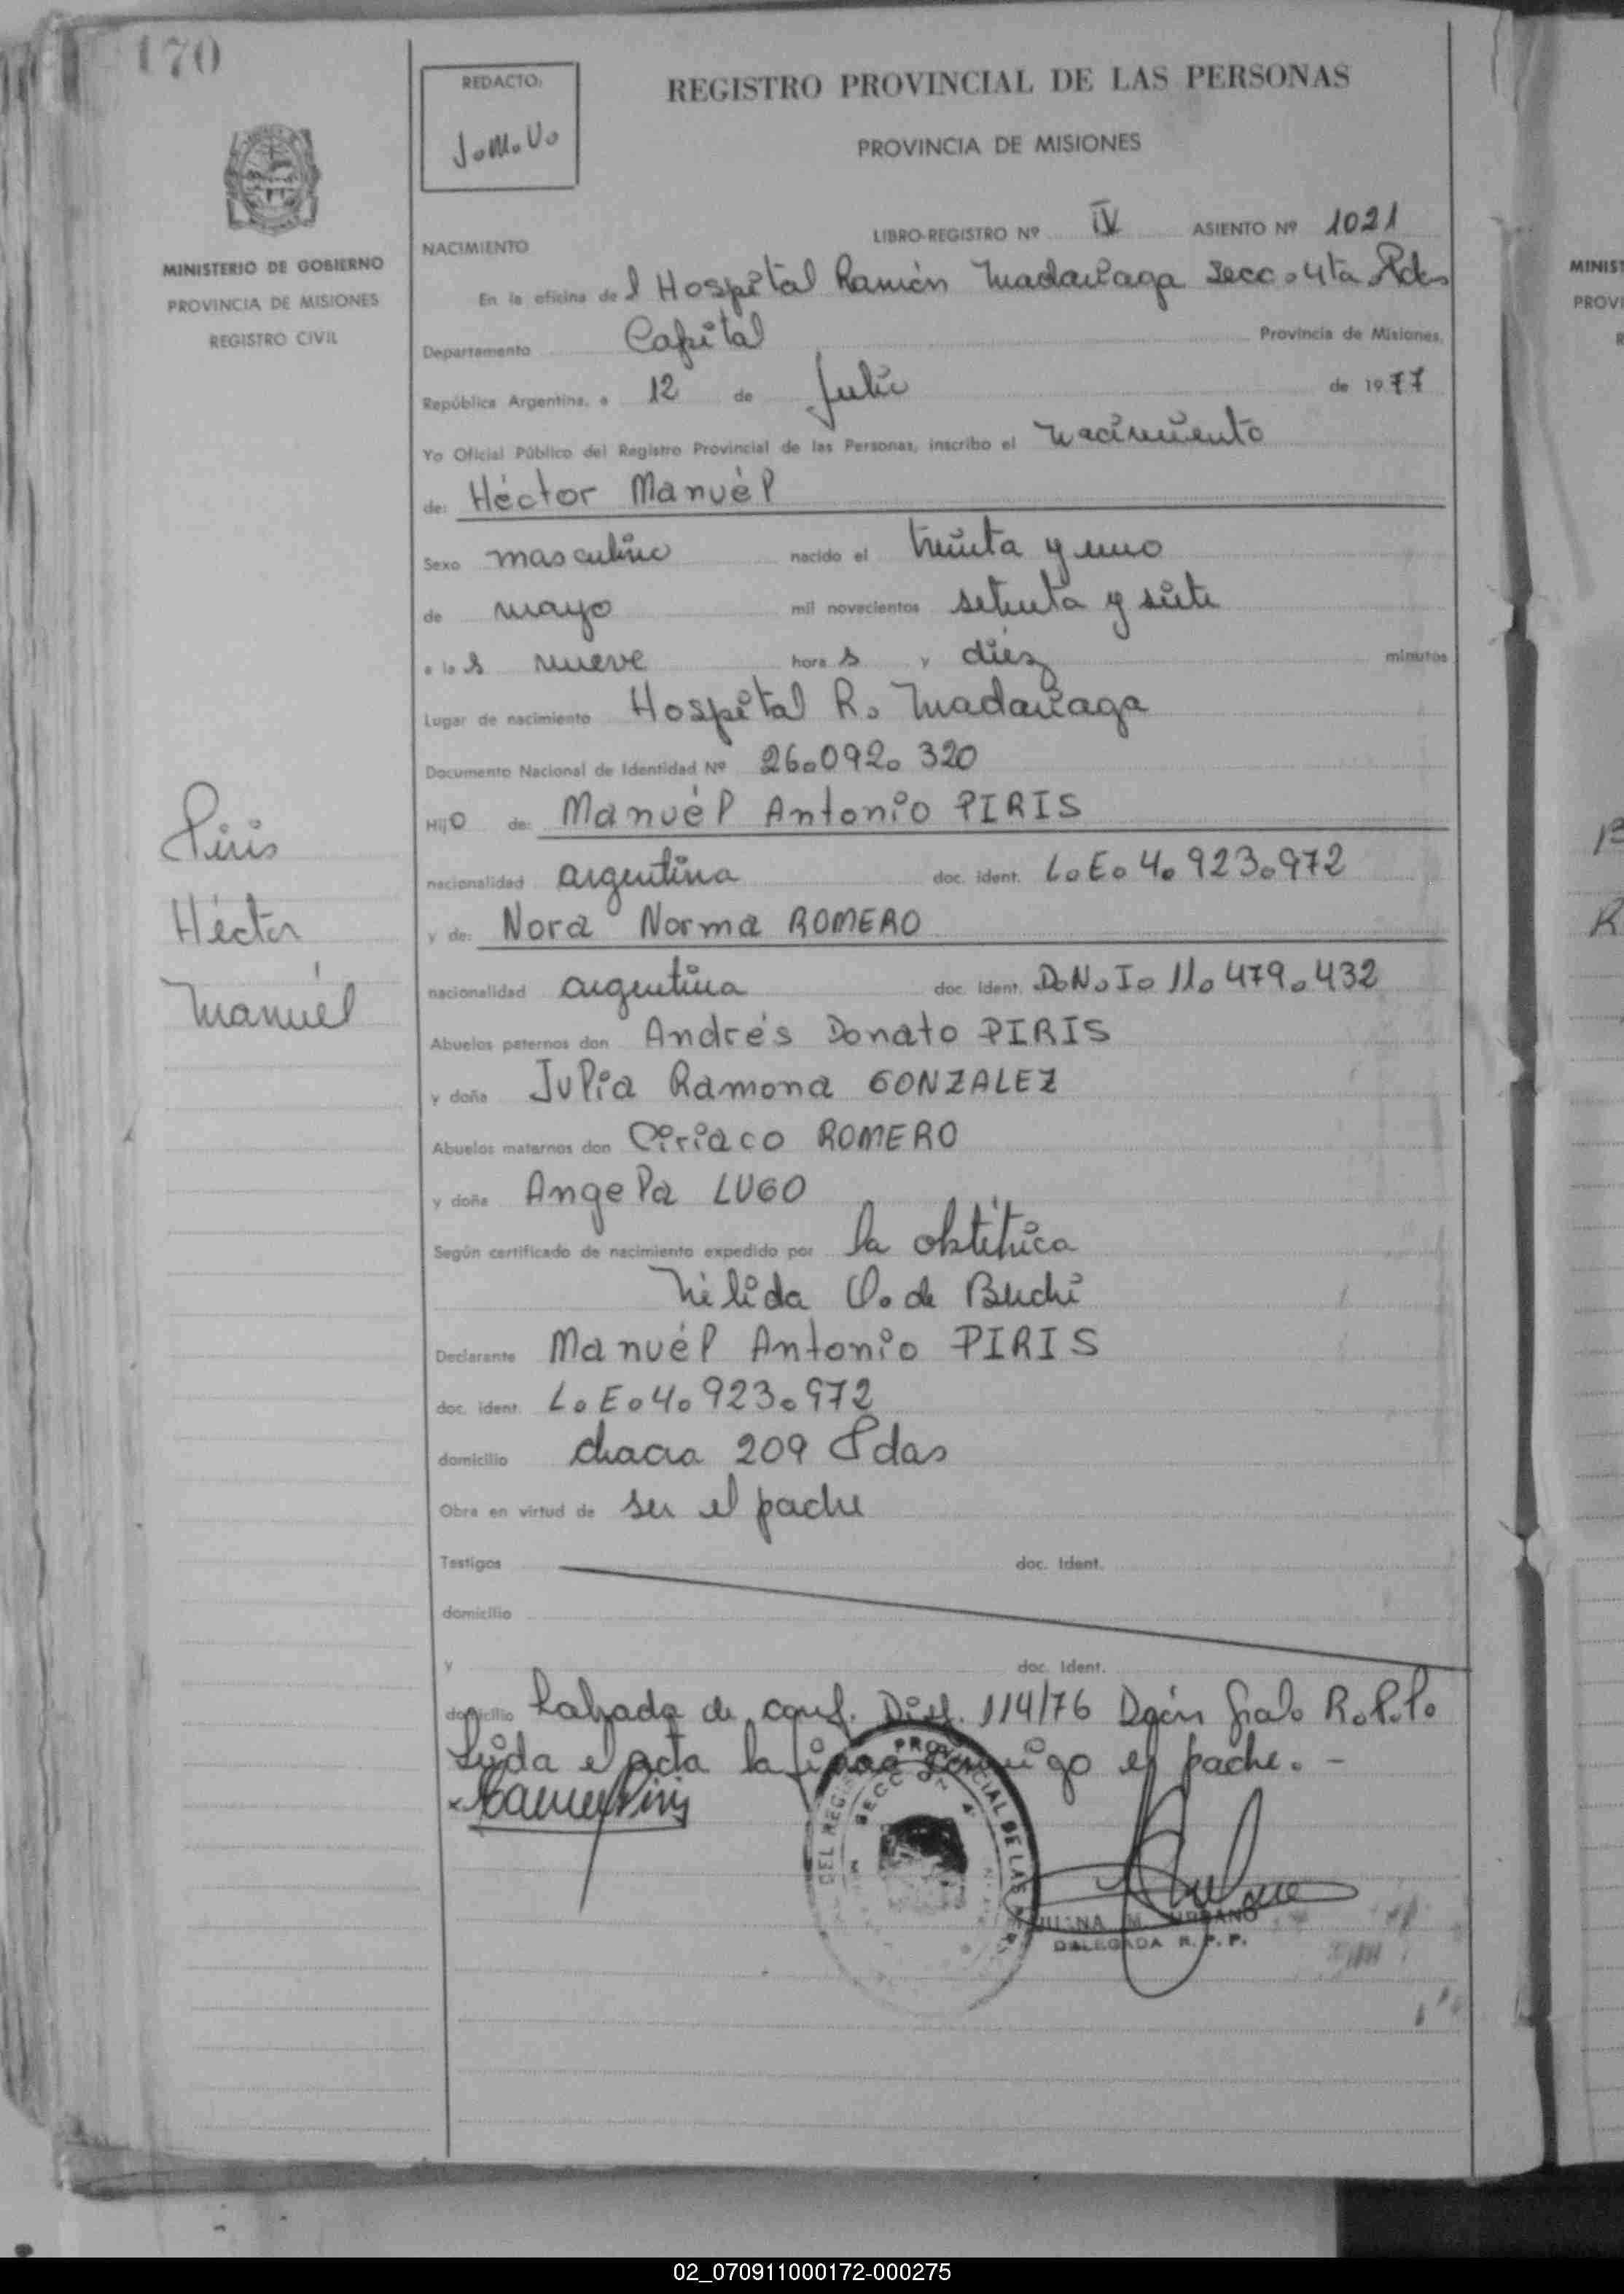 170
REDACTO:
J.M.U.
REGISTRO PROVINCIAL DE LAS PERSONAS
PROVINCIA DE MISIONES
MINISTERIO DE GOBIERNO
PROVINCIA DE MISIONES
REGISTRO CIVIL
LIBRO-REGISTRO Nº IV ASIENTO Nº 1021
NACIMIENTO
En la oficina del Hospital Ramón Madariaga Secc. 4ta Pdas
Departamento Capital Provincia de Misiones,
República Argentina, a 12 de Julio de 1977
Yo Oficial Público del Registro Provincial de las Personas, inscribo el nacimiento
de: Héctor Manuél
Sexo masculino nacido el treinta y uno
de mayo mil novecientos setenta y siete
a las nueve horas y diéz minutos
Lugar de nacimiento Hospital R. Madariaga
Documento Nacional de Identidad Nº 26.092.320
Hijo de: Manuél Antonio PIRIS
nacionalidad argentina doc. ident. L.E.4.923.972
y de: Nora Norma ROMERO
nacionalidad argentina doc. ident. D.N.I. 11.479.432
Abuelos paternos don Andrés Donato PIRIS
y doña Julia Ramona GONZALEZ
Abuelos maternos don Ciriaco ROMERO
y doña Angela LUGO
Según certificado de nacimiento expedido por la obtétrica
Nélida O. de Buchi
Declarante Manuél Antonio PIRIS
doc. ident. L.E.4.923.972
domicilio chacra 209 Pdas
Obra en virtud de ser el padre
Testigos doc. Ident.
domicilio
y doc. Ident.
domicilio Labrada de conf. Disp. 114/76 Dción Gral. R.P.P.
Leida el acta la firma conmigo el padre. -
Piris
Héctor
Manuél
PROVINCIAL DE LAS
DEL REGIS
SECCION 4
JUANA M. URBANO
DELEGADA R. P. P.
MINIST
PROVI
R
02_070911000172-000275